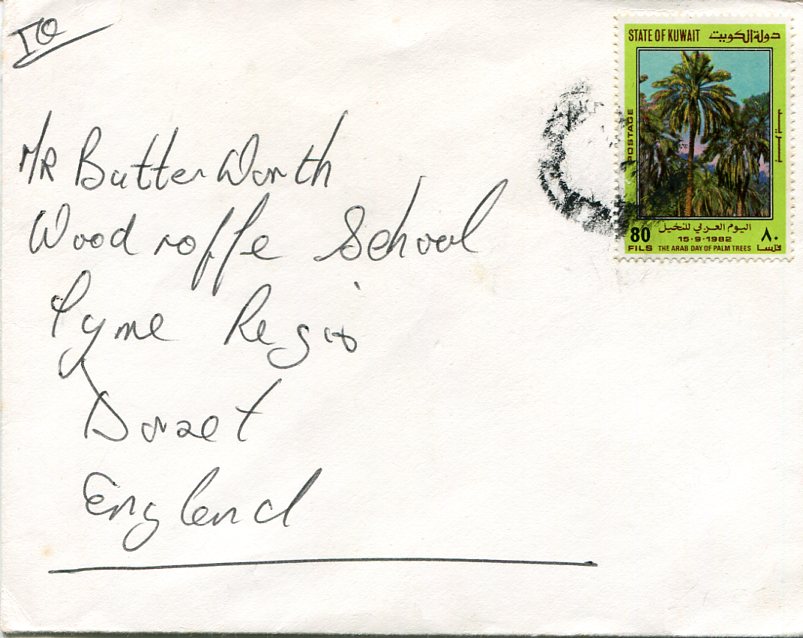 TO
STATE OF KUWAIT دولة الكويت
POSTAGE
بريد
80 اليوم العربي للنخيل ٨٠
15-9-1982
FILS THE ARAB DAY OF PALM TREES فلسا
MR Butter Worth
Wood roffe School
Lyme Regis
Dorset
England